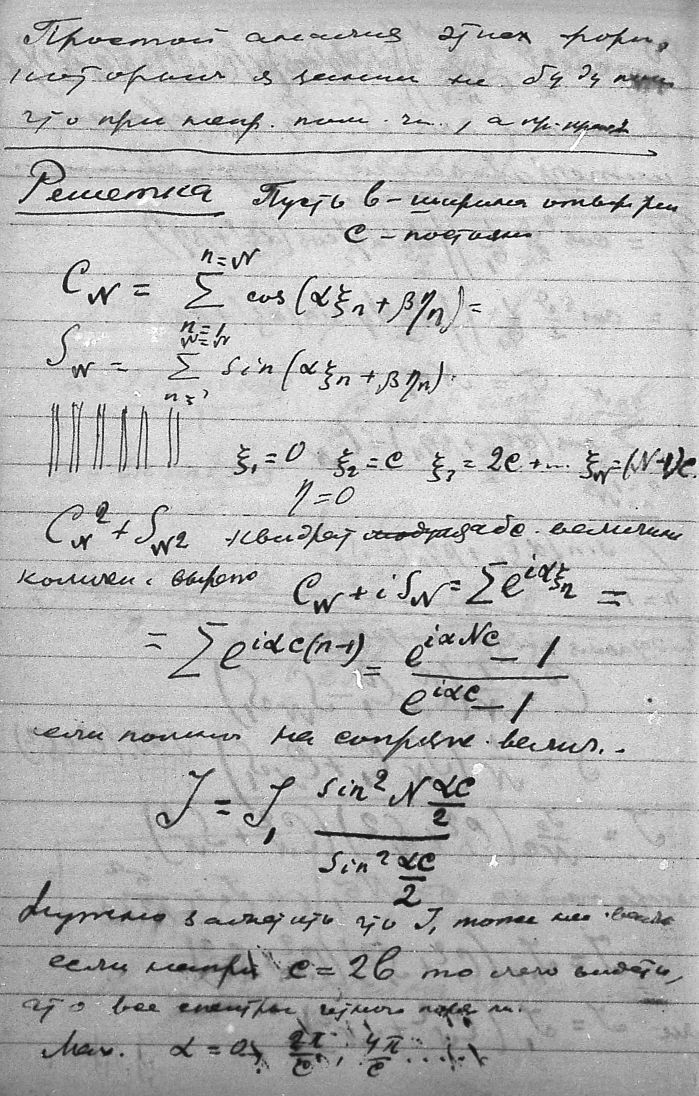 Простой анализ этих форм,
которыми я не буду
что при напр. , а
Решетка Пусть b – ширина отверстия
c – постоян
C_N = \sum_{n=1}^{n=N} cos(αξ_n + βη_n) =
S_N = \sum_{n=1}^{n=N} sin(αξ_n + βη_n).
ξ_1 = 0 ξ_2 = c ξ_3 = 2c + ... ξ_N = (N-1)c.
η = 0
C_N^2 + S_N^2 квадрат абс. величины
C_N + i S_N = \sum e^{iαξ_n} =
= \sum e^{iαc(n-1)} = \frac{e^{iαNc} - 1}{e^{iαc} - 1}
если на сопряж. велич..
J = J_1 \frac{sin^2 N \frac{αc}{2}}{sin^2 \frac{αc}{2}}
Нужно заметить что J_1 тоже
если напри c = 2b то легко видеть,
что все спектры четного
Max. α = 0, \frac{2π}{c}, \frac{4π}{c} .....